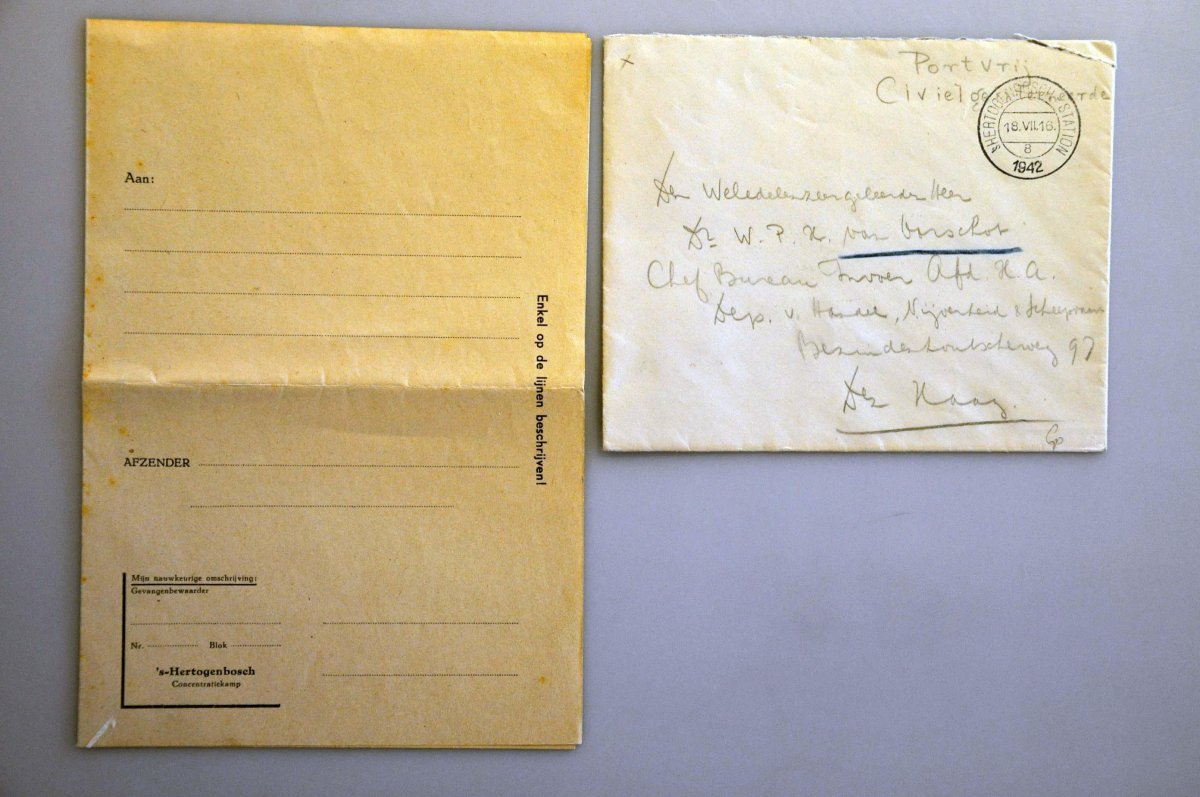 Aan:
Enkel op de lijnen beschrijven!
AFZENDER
Mijn nauwkeurige omschrijving:
Gevangenbewaarder
Nr. Blok
's-Hertogenbosch
Concentratiekamp
x
Portvrij
Civiel
'S HERTOGENBOSCH-STATION
18.VII.16.
8
1942
Den Weledelzeergeleerden Heer
Dr W. P. H. van Oorschot
Chef Bureau Invoer Afd. H. A.
Dep. v. Handel, Nijverheid & Scheepvaart
Bezuidenhoutscheweg 97
Den Haag.